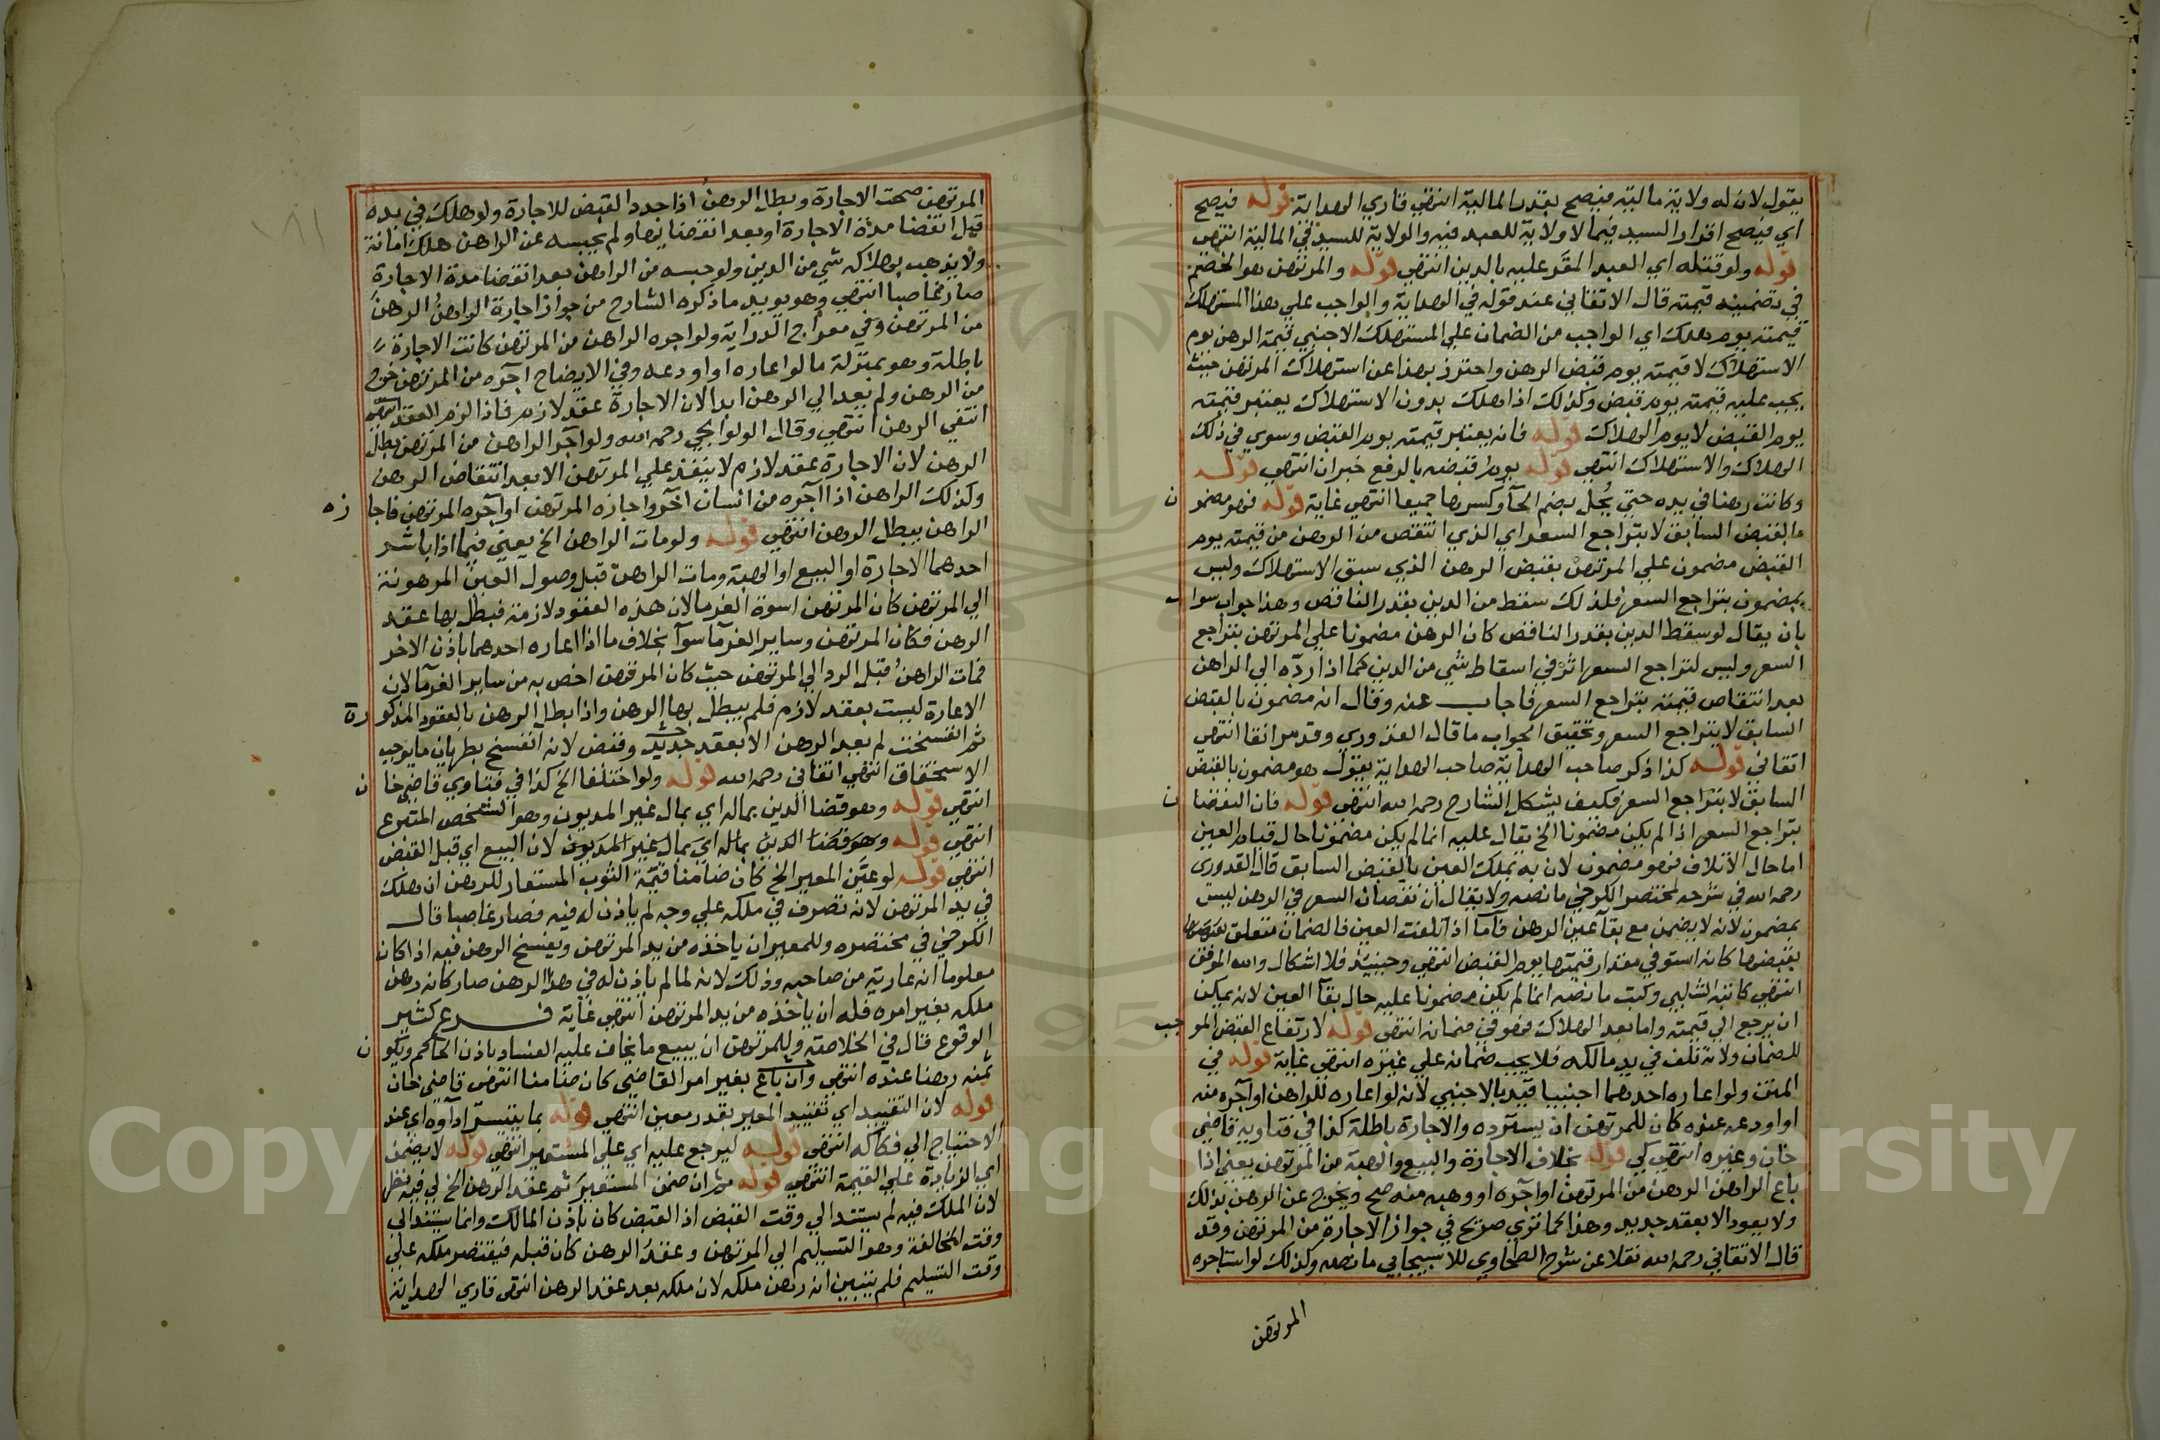 يقول لان له ولاية مالية فيصح بقدر المالية انتهى قاري الهداية قوله فيصح
اي فيصح اقرار السيد فيما لا ولاية للعبد فيه والولاية للسيد في المالية انتهى
قوله ولو قتله اي العبد المقر عليه بالدين انتهى قوله والمرتهن هو الخصم
في تضمينه قيمته قال الاتقاني عند قوله في الهداية والواجب علي هذا المستهلك
قيمته يوم هلك اي الواجب من الضمان علي المستهلك الاجنبي قيمة الرهن يوم
الاستهلاك لا قيمته يوم قبض الرهن واحترز بهذا عن استهلاك المرتهن حيث
يجب عليه قيمته يوم قبض وكذلك اذا هلك بدون الاستهلاك يعتبر قيمته
يوم القبض لا يوم الهلاك قوله فانه يعتبر قيمته يوم القبض وسوي في ذلك
الهلاك والاستهلاك انتهى قوله يوم قبضه بالرفع خبر ان انتهى قوله
وكانت رهنا في يده حتي يحل بضم الحآ وكسرها جميعا انتهى غاية قوله فهو مضمون
بالقبض السابق لا بتراجع السعر اي الذي انتقص من الرهن من قيمته يوم
القبض مضمون علي المرتهن بقبض الرهن الذي سبق الاستهلاك وليس
بمضمون بتراجع السعر فلذلك سقط من الدين بقدر الناقص وهذا جواب سوال
بان يقال لو سقط الدين بقدر الناقص كان الرهن مضمونا علي المرتهن بتراجع
السعر وليس لتراجع السعر اثر في اسقاط شي من الدين كما اذا رده الي الراهن
بعد انتقاص قيمته بتراجع السعر فاجاب عنه وقال انه مضمون بالقبض
السابق لا بتراجع السعر وتحقيق الجواب ما قال القدوري وقد مر انفا انتهى
اتقاني قوله كذا ذكر صاحب الهداية صاحب الهداية يقول هو مضمون بالقبض
السابق لا بتراجع السعر فكيف يشكل الشارح رحمه الله انتهى قوله فان النقصان
بتراجع السعر اذا لم يكن مضمونا الخ يقال عليه انما لم يكن مضمونا حال قيام العين
اما حال الاتلاف فهو مضمون لان به يملك العين بالقبض السابق قال القدوري
رحمه الله في شرحه لمختصر الكرخي ما نصه ولا يقال ان نقصان السعر في الرهن ليس
بمضمون لانه لا يضمن مع بقآ عين الرهن فآما اذا تلفت العين فالضمان متعلق
بقبضها كانه استوفي مقدار قيمتها يوم القبض انتهى وحينيذ فلا اشكال والله الموفق
انتهى كاتبه الشلبي وكتب ما نصه انما لم يكن مضمونا عليه حال بقآ العين لانه يمكن
ان يرجع الي قيمته واما بعد الهلاك فهو في ضمانه انتهى قوله لارتفاع القبض الموجب
للضمان ولانه تلف في يد مالكه فلا يجب ضمانه علي غيره انتهى غاية قوله في
المتن ولو اعاره احدهما اجنبيا قيد بالاجنبي لانه لو اعاره للراهن او آجره منه
او اودعه عنده كان للمرتهن ان يسترده والاجارة باطلة كذا في فتاوي قاضي
خان وغيره انتهى كي قوله بخلاف الاجارة والبيع والهبة من المرتهن يعني اذا
باع الراهن الرهن من المرتهن او آجره او وهبه منه صح ويخرج عن الرهن بذلك
ولا يعود الا بعقد جديد وهذا كما تري صريح في جواز الاجارة من المرتهن وقد
قال الاتقاني رحمه الله نقلا عن شرح الطحاوي للاسبيجابي ما نصه وكذلك لو استاجره
المرتهن
المرتهن صحت الاجارة وبطل الرهن اذا جدد القبض للاجارة ولو هلك في يده
قبل انقضا مدة الاجارة او بعد انقضايها ولم يحبسه عن الراهن هلك امانة
ولا يذهب بهلاكه شي من الدين ولو حبسه من الراهن بعد انقضا مدة الاجارة
صار غاصبا انتهى وهو يويد ما ذكره الشارح من جواز اجارة الراهن الرهن
من المرتهن وفي معراج الدراية ولو اجره الراهن من المرتهن كانت الاجارة
باطلة وهو بمنزلة ما لو اعاره او اودعه وفي الايضاح آجره من المرتهن خرج
من الرهن ولم يعد الي الرهن ابدا لان الاجارة عقد لازم فاذا لزم العقد
انتفي الرهن انتهى وقال الولوالجي رحمه الله ولو آجر الراهن من المرتهن بطل
الرهن لان الاجارة عقد لازم لا ينفذ علي المرتهن الا بعد انتقاض الرهن
وكذلك الراهن اذا آجره من انسان آخر واجازه المرتهن او آجره المرتهن فاجازه
الراهن يبطل الرهن انتهى قوله ولو مات الراهن الخ يعني فيما اذا باشر
احدهما الاجارة او البيع او الهبة ومات الراهن قبل وصول العين المرهونة
الي المرتهن كان المرتهن اسوة الغرما لان هذه العقود لازمة فبطل بها عقد
الرهن فكان المرتهن وساير الغرمآ سوآ بخلاف ما اذا اعاره احدهما باذن الاخر
فمات الراهن قبل الرد الي المرتهن حيث كان المرتهن اخص به من ساير الغرمآ لان
الاعارة ليست بعقد لازم فلم يبطل بها الرهن واذا بطل الرهن بالعقود المذكورة
ثم انفسخت لم يعد الرهن الا بعقد جديد وقبض لانه انفسخ بطريان ما يوجب
الاستحقاق انتهى اتقاني رحمه الله قوله ولو اختلفا الخ كذا في فتاوي قاضي خان
انتهى قوله وهو قضا الدين بماله اي بمال غير المديون وهو الشخص المتبرع
انتهى قوله وهو قضا الدين بماله اي بمال غير المديون لان البيع اي قبل القبض
انتهى قوله لو عين المعير الخ كان ضامنا قيمة الثوب المستعار للرهن ان هلك
في يد المرتهن لانه تصرف في ملكه علي وجه لم ياذن له فيه فصار غاصبا قال
الكرخي في مختصره وللمعير ان ياخذه من يد المرتهن ويفسخ الرهن فيه اذا كان
معلوما انه عارية من صاحبه وذلك لانه لما لم ياذن له في هذا الرهن صار كانه رهن
ملكه بغير امره فله ان ياخذه من يد المرتهن انتهى غاية فرع كثير
الوقوع قال في الخلاصة وللمرتهن ان يبيع ما يخاف عليه الفساد باذن الحاكم ويكون
ثمنه رهنا عنده انتهى وان باع بغير امر القاضي كان ضامنا انتهى قاضي خان
قوله لان التقييد اي تقييد المعير بقدر معين انتهى قوله بما يتيسر اداوه اي عند
الاحتياج الي فكاكه انتهى قوله ليرجع عليه اي علي المستعير انتهى قوله لا يضمن
اي الزيادة علي القيمة انتهى قوله ثم ان ضمن المستعير تم عقد الرهن الخ لي فيه نظر
لان الملك فيه لم يستند الي وقت القبض اذ القبض كان باذن المالك وانما يستند الي
وقت المخالفة وهو التسليم الي المرتهن وعقد الرهن كان قبله فيقتصر ملكه علي
وقت التسليم فلم يتبين انه رهن ملكه لان ملكه بعد عقد الرهن انتهى قاري الهداية